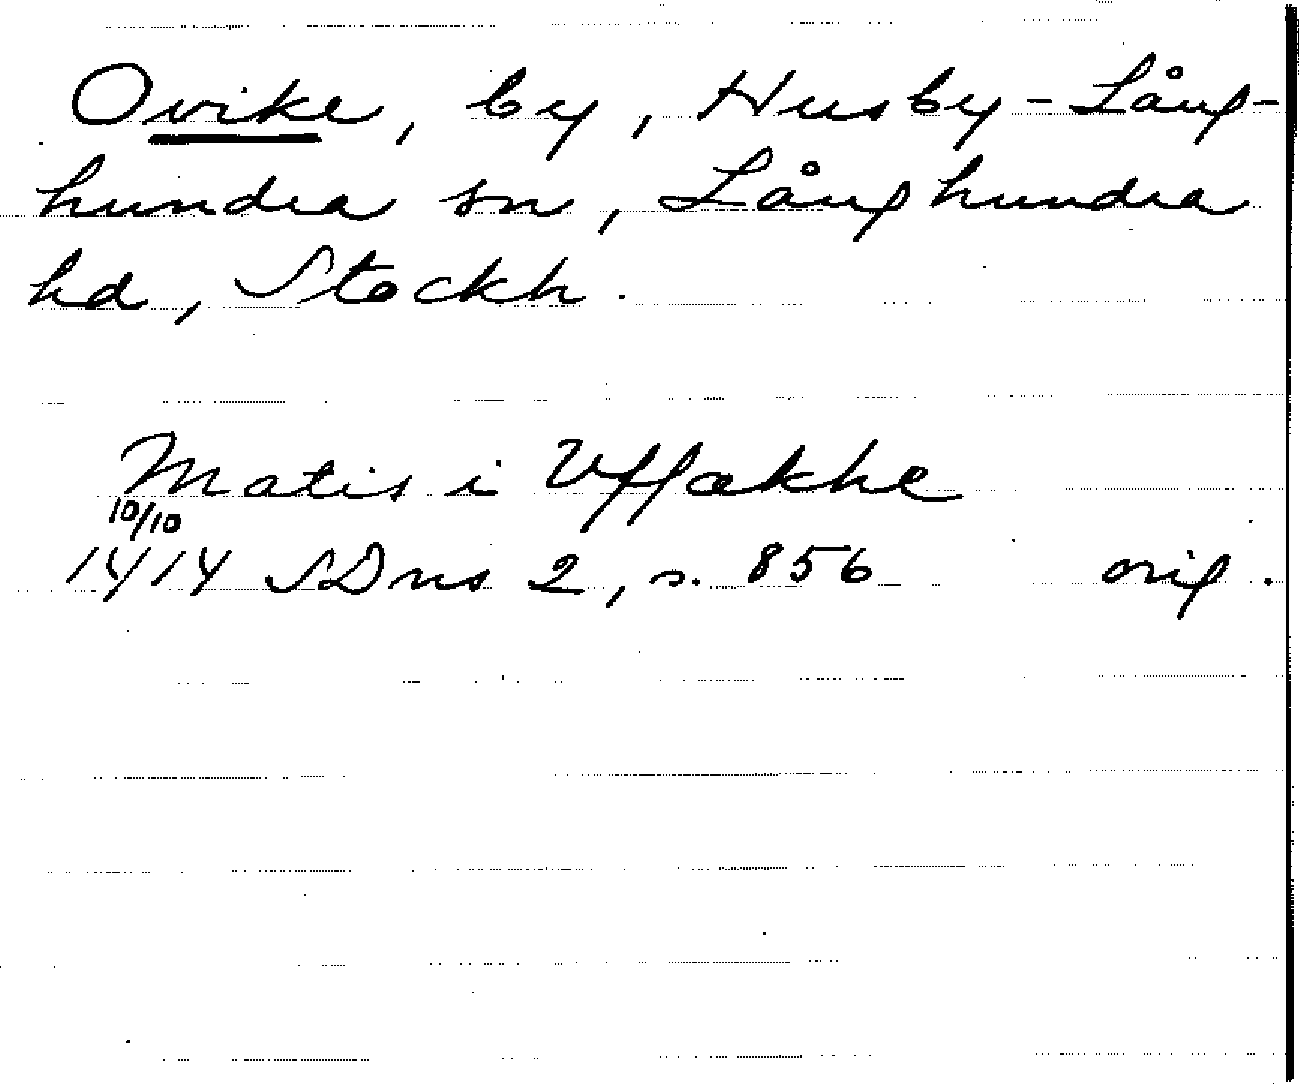 Ovike, by, Husby-Lång-
hundra sn, Långhundra
hd, Stockh.
Matis i Vffakhe
10/10
1414 SDns 2, s. 856 orig.